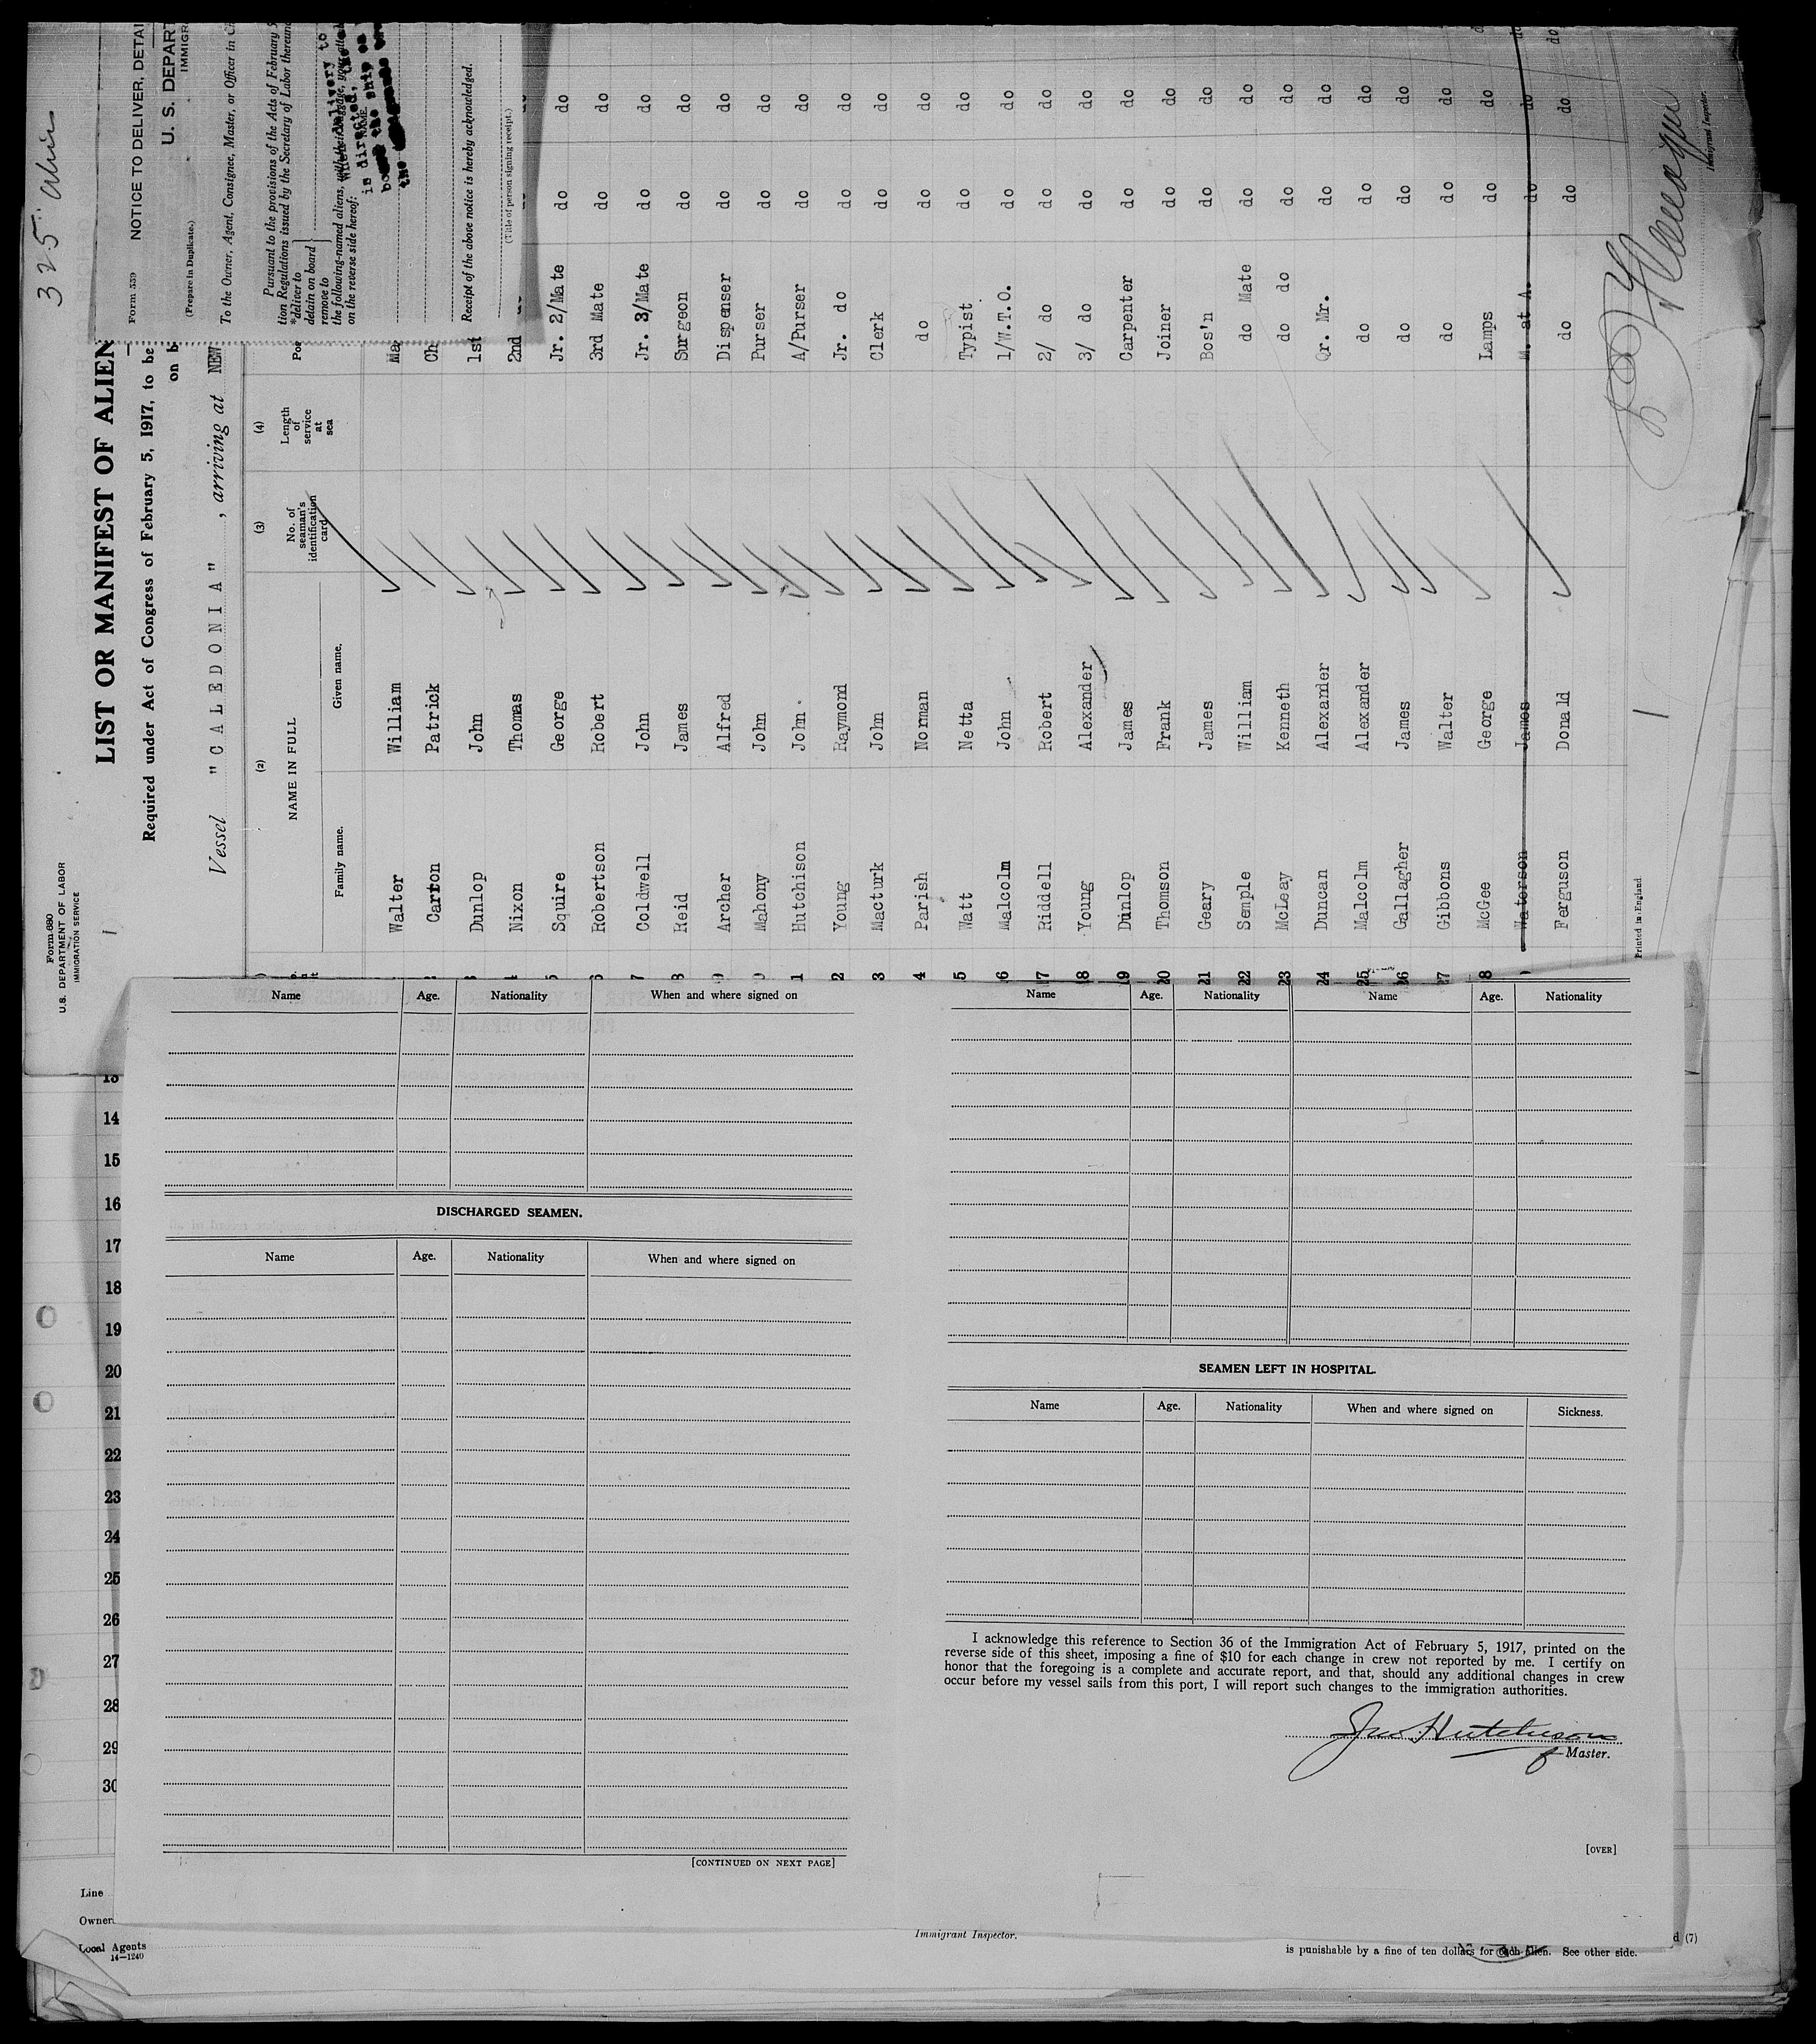 325 alien
Form 680
U.S. DEPARTMENT OF LABOR
IMMIGRATION SERVICE
LIST OR MANIFEST OF ALIEN
Required under Act of Congress of February 5, 1917, to be
on b
Vessel "CALEDONIA", arriving at NEW
Form 539
NOTICE TO DELIVER, DETAI
(Prepare in Duplicate.)
U. S. DEPART
IMMIGR
To the Owner, Agent, Consignee, Master, or Officer in Ch
Pursuant to the provisions of the Acts of February 5
tion Regulations issued by the Secretary of Labor thereund
*deliver to
detain on board
remove to
the following-named aliens,
on the reverse side hereof:
NAME.
Receipt of the above notice is hereby acknowledged.
(Title of person signing receipt.)
(2)
NAME IN FULL
Family name.
Given name.
(3)
No. of
seaman's
identification
card
(4)
Length
of
service
at
sea
Pos
Walter William Ma
Carton Patrick Ch
3 Dunlop John 1st
4 Nixon Thomas 2nd do
5 Squire George Jr. 2/Mate do do
6 Robertson Robert 3rd Mate do do
7 Coldwell John Jr. 3/Mate do do
8 Reid James Surgeon do do
9 Archer Alfred Dispenser do do
0 Mahony John Purser do do
1 Hutchison John. A/Purser do do
2 Young Raymond Jr. do do do
3 Macturk John Clerk do do
4 Parish Norman do do do
5 Watt Netta Typist do do
16 Malcolm John 1/W.T.O. do do
17 Riddell Robert 2/ do do do
18 Young Alexander 3/ do do do
19 Dunlop James Carpenter do do
20 Thomson Frank Joiner do do
21 Geary James Bos'n do do
22 Semple William do Mate do do
23 McLeay Kenneth do do do do
24 Duncan Alexander Qr. Mr. do do
25 Malcolm Alexander do do do
26 Gallagher James do do do
27 Gibbons Walter do do do
8 McGee George Lamps do do do
Waterson James M. at A. do do do
Ferguson Donald do do do do
Printed in England.
Immigrant Inspector.
Name Age. Nationality When and where signed on
DISCHARGED SEAMEN.
Name Age. Nationality When and where signed on
[CONTINUED ON NEXT PAGE]
Name Age. Nationality Name Age. Nationality
SEAMEN LEFT IN HOSPITAL.
Name Age. Nationality When and where signed on Sickness.
I acknowledge this reference to Section 36 of the Immigration Act of February 5, 1917, printed on the
reverse side of this sheet, imposing a fine of $10 for each change in crew not reported by me. I certify on
honor that the foregoing is a complete and accurate report, and that, should any additional changes in crew
occur before my vessel sails from this port, I will report such changes to the immigration authorities.
Jno. Hutchison
Master.
[OVER]
13
14
15
16
17
18
19
20
21
22
23
24
25
26
27
28
29
30
Line
Owner
Local Agents
14—1240
Immigrant Inspector.
d (7)
is punishable by a fine of ten dollars for each alien. See other side.